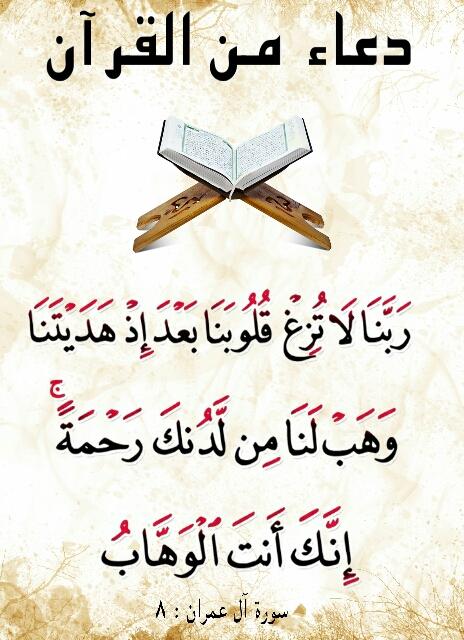 دعاء من القرآن
رَبَّنَا لَا تُزِغْ قُلُوبَنَا بَعْدَ إِذْ هَدَيْتَنَا
وَهَبْ لَنَا مِن لَّدُنكَ رَحْمَةً ۚ
إِنَّكَ أَنتَ الْوَهَّابُ
سورة آل عمران : ٨